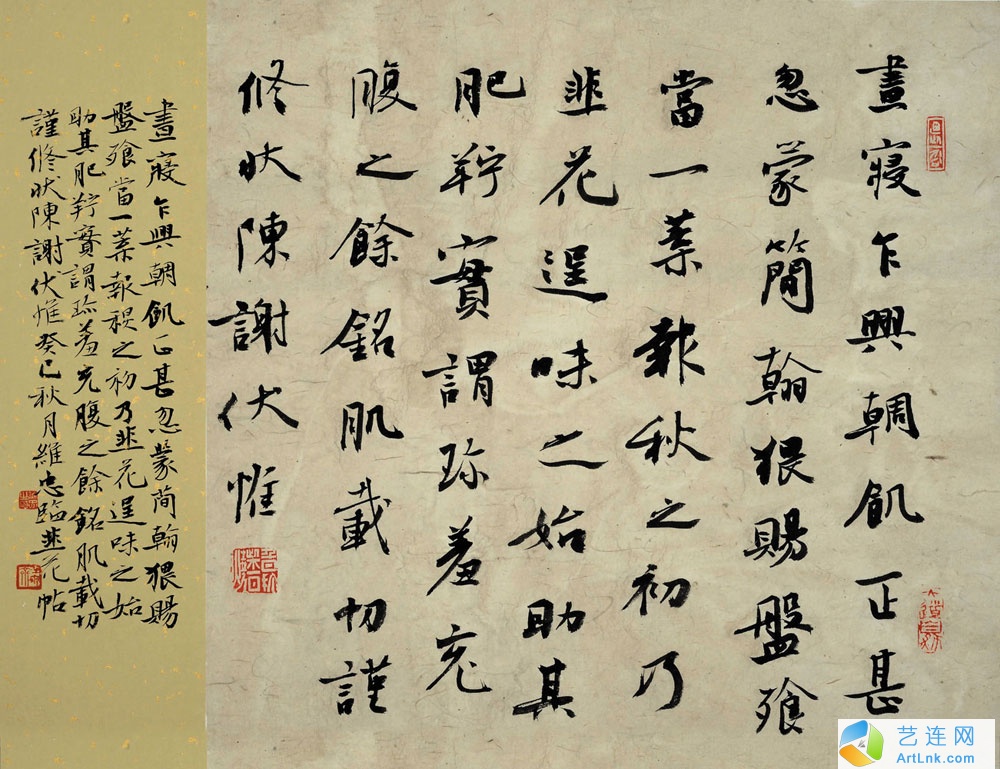 晝寢乍興輖飢正甚
忽蒙簡翰猥賜盤飧
當一葉報秋之初乃
韭花逞味之始助其
肥羜實謂珍羞充
腹之餘銘肌載切謹
修狀陳謝伏惟
晝寢乍興朝飢正甚忽蒙簡翰猥賜
盤飧當一葉報秋之初乃韭花逞味之始
助其肥羜實謂珍羞充腹之餘銘肌載切
謹修狀陳謝伏惟癸巳秋月維忠臨韭花帖
艺连网
ArtLnk.com